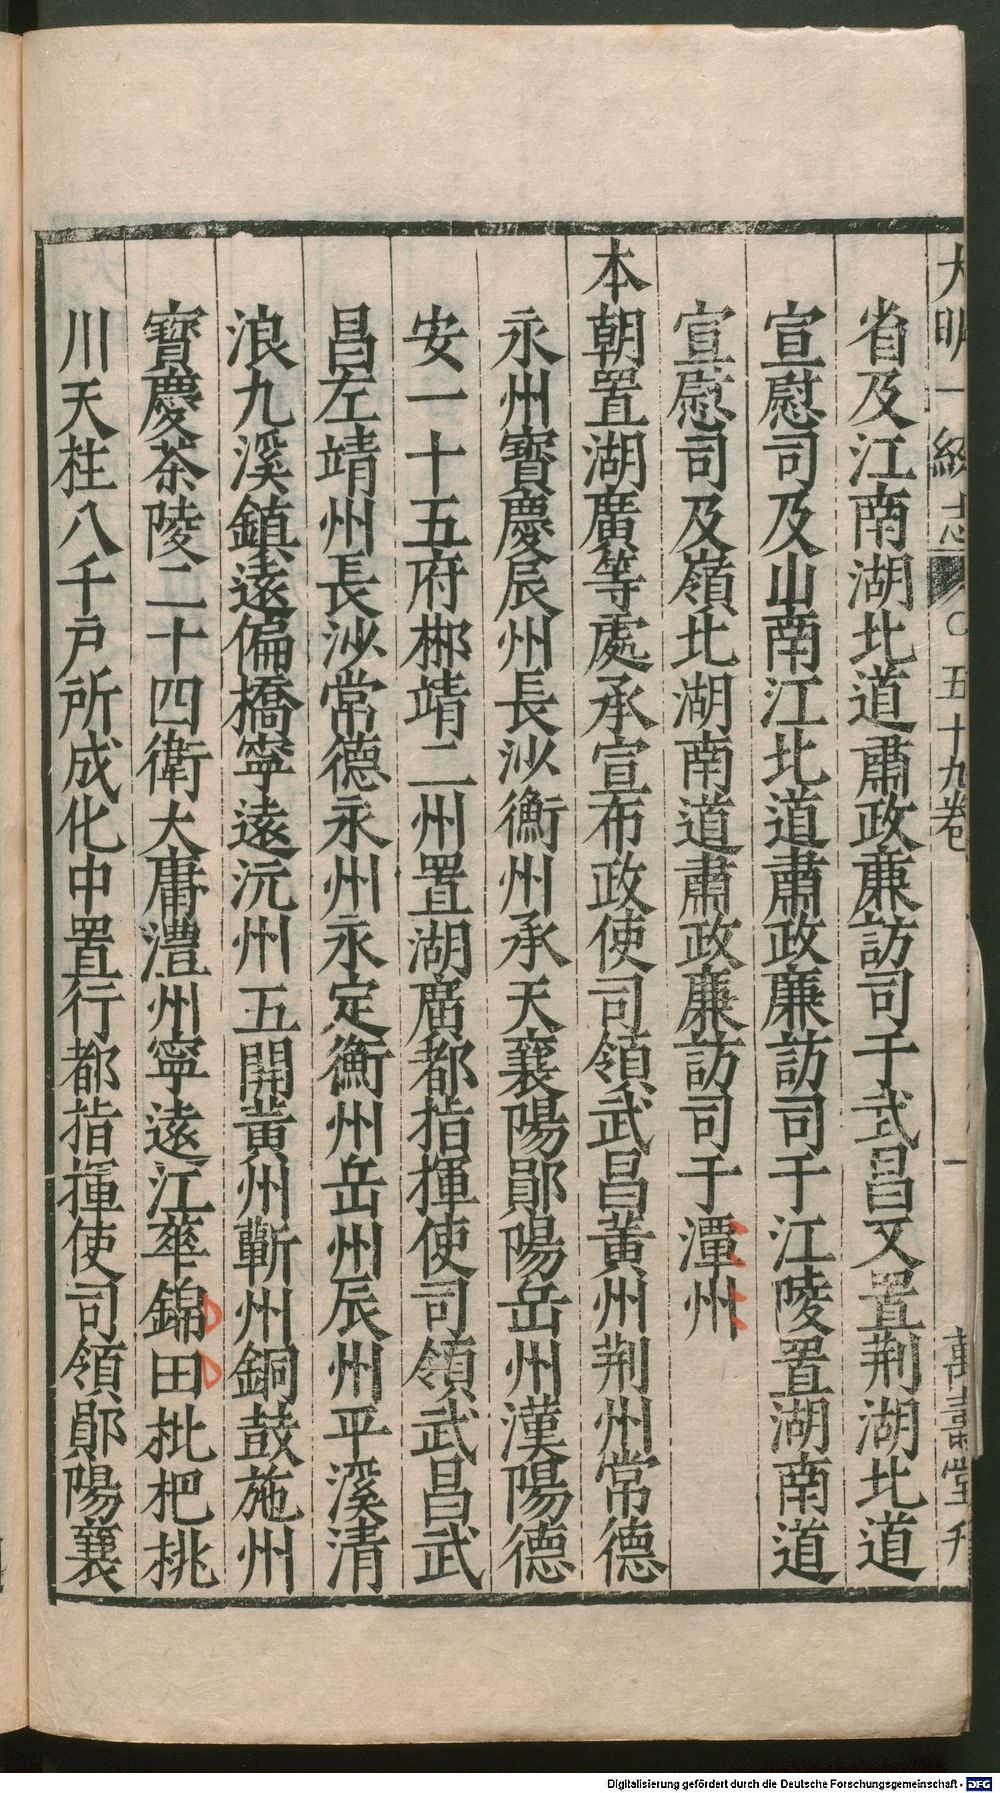 大明一統志 五十九卷 一 萬壽堂刊
省及江南湖北道肅政廉訪司于武昌又置荆湖北道
宣慰司及山南江北道肅政廉訪司于江陵置湖南道
宣慰司及嶺北湖南道肅政廉訪司于潭州
本朝置湖廣等處承宣布政使司領武昌黃州荆州常德
永州寶慶辰州長沙衡州承天襄陽鄖陽岳州漢陽德
安一十五府郴靖二州置湖廣都指揮使司領武昌武
昌左靖州長沙常德永州永定衡州岳州辰州平溪清
浪九溪鎮遠偏橋寧遠沅州五開黃州蘄州銅鼓施州
寶慶茶陵二十四衛大庸澧州寧遠江華錦田枇杷桃
川天柱八千戶所成化中置行都指揮使司領鄖陽襄
Digitalisierung gefördert durch die Deutsche Forschungsgemeinschaft - DFG